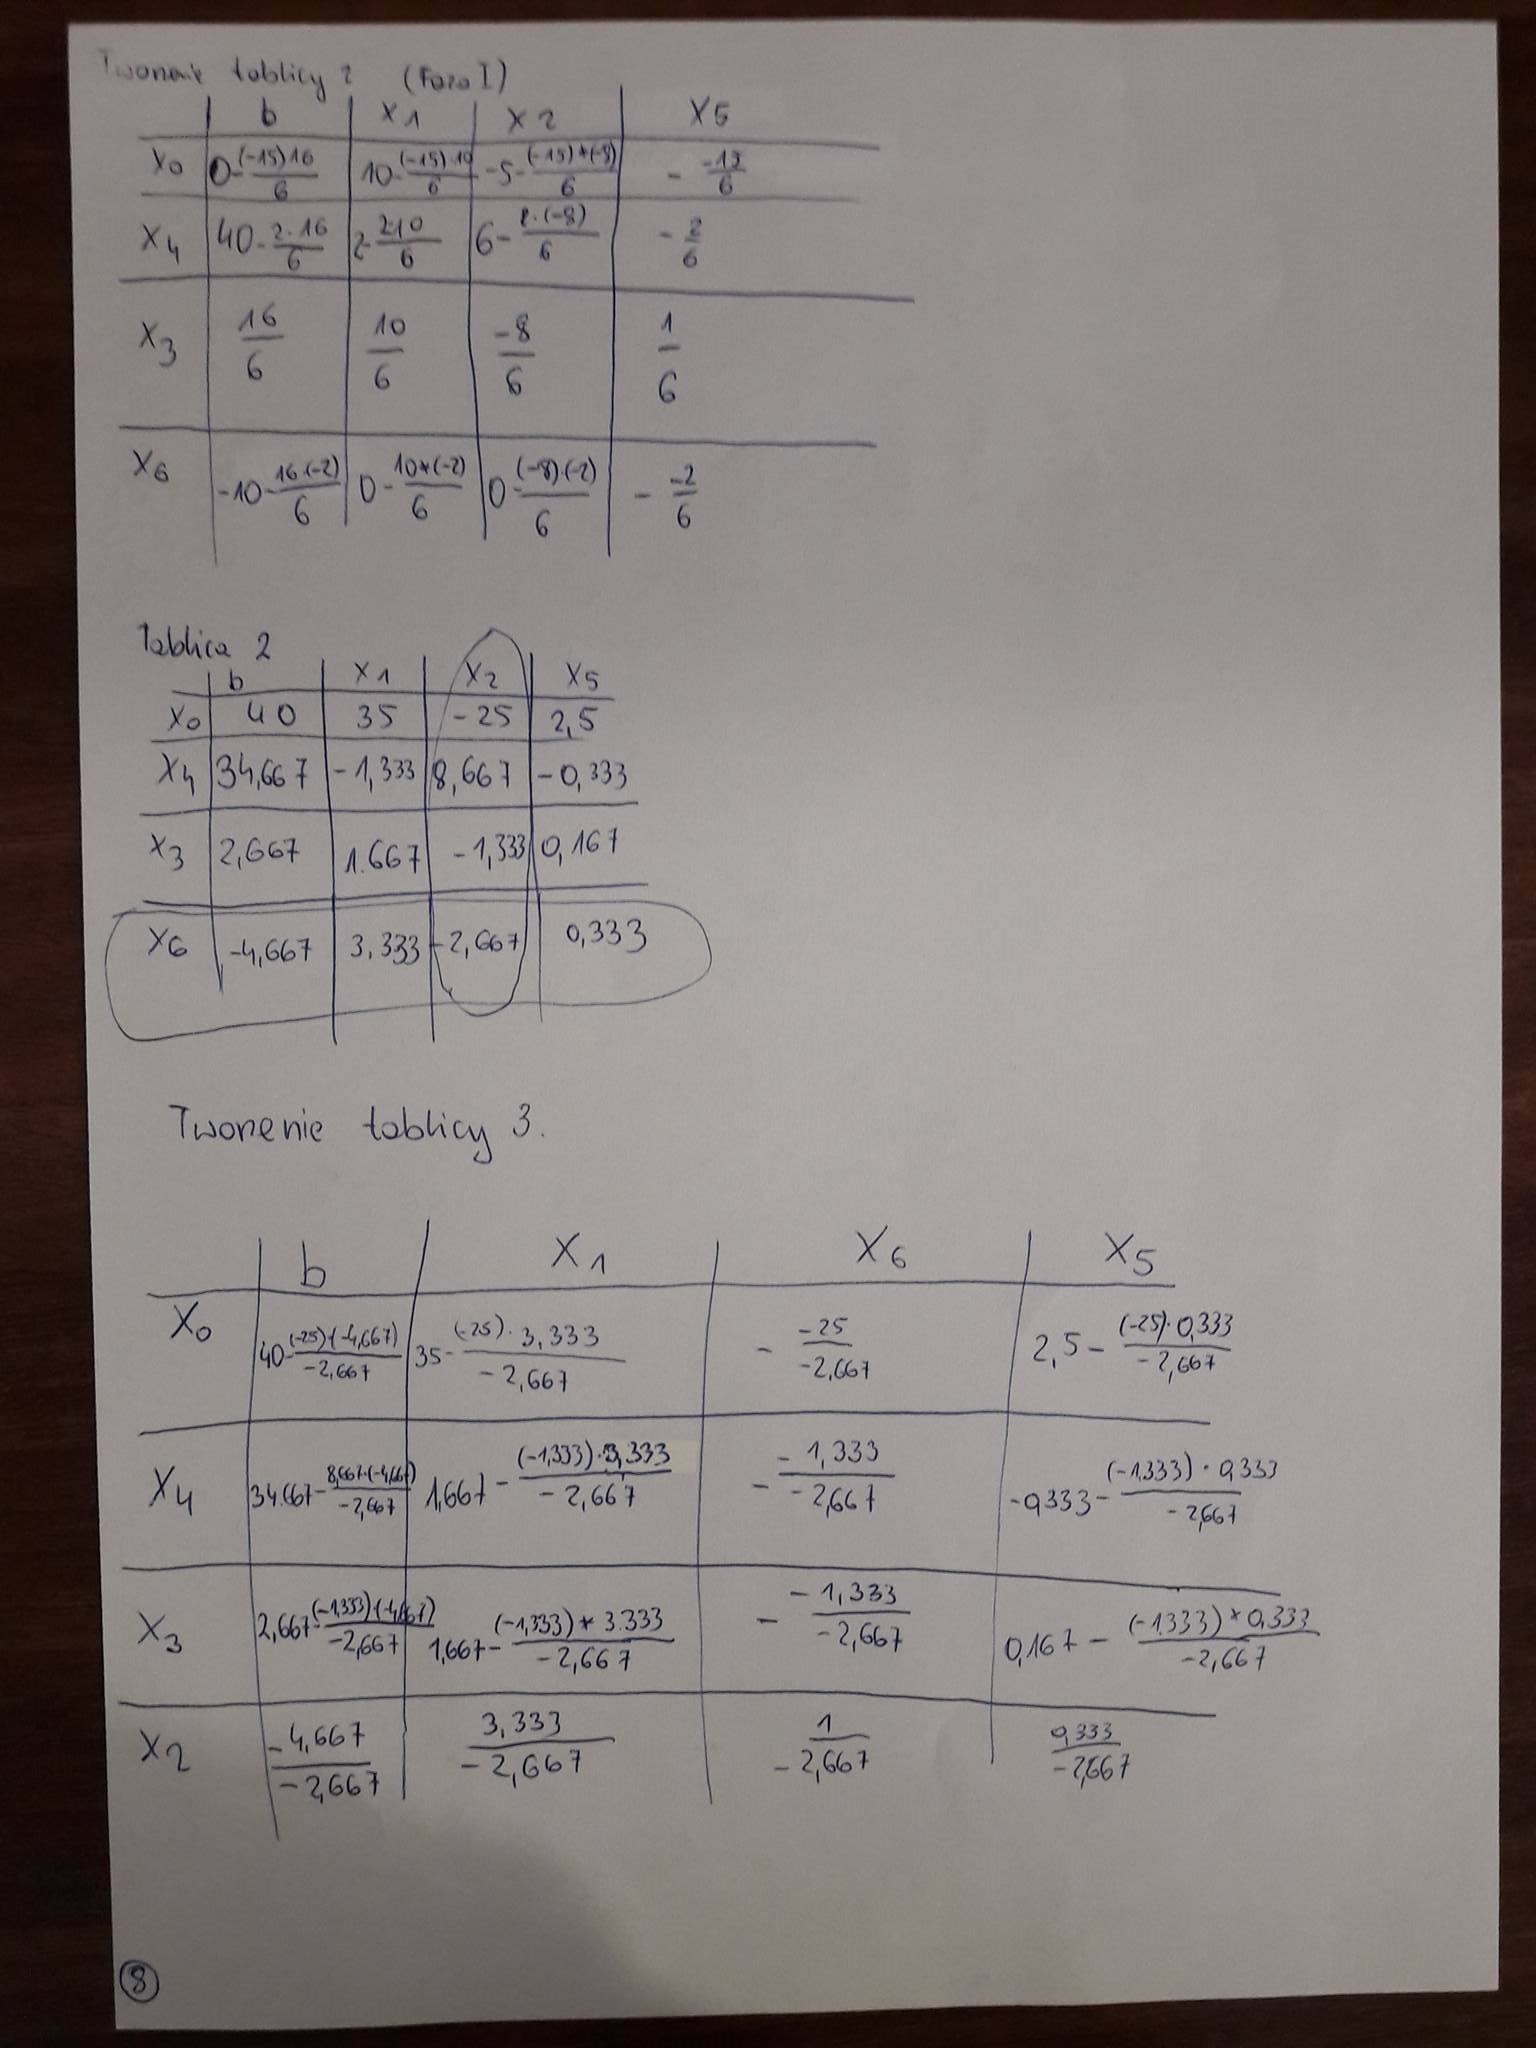 Tworzenie tablicy 2 (Faza I)
b x1 x2 x5
x0 0-(-15)·16/6 10-(-15)·10/6 -5-(-15)*(-8)/6 - -15/6
x4 40-2·16/6 2-2·10/6 6-2·(-8)/6 -2/6
x3 16/6 10/6 -8/6 1/6
x6 -10-16·(-2)/6 0-10*(-2)/6 0-(-8)·(-2)/6 - -2/6
Tablica 2
b x1 x2 x5
x0 40 35 -25 2,5
x4 34,667 -1,333 8,667 -0,333
x3 2,667 1.667 -1,333 0,167
x6 -4,667 3.333 -2,667 0,333
Tworzenie tablicy 3.
b x1 x6 x5
x0 40-(-25)·(-4,667)/-2,667 35-(-25)·3,333/-2,667 - -25/-2,667 2,5-(-25)·0,333/-2,667
x4 34.667-8,667·(-4,667)/-2,667 1,667-(-1,333)·3,333/-2,667 - -1,333/-2,667 -0,333-(-1,333)·0,333/-2,667
x3 2,667-(-1,333)·(-4,667)/-2,667 1,667-(-1,333)*3.333/-2,667 - -1,333/-2,667 0,167-(-1,333)*0,333/-2,667
x2 -4,667/-2,667 3,333/-2,667 1/-2,667 0,333/-2,667
8